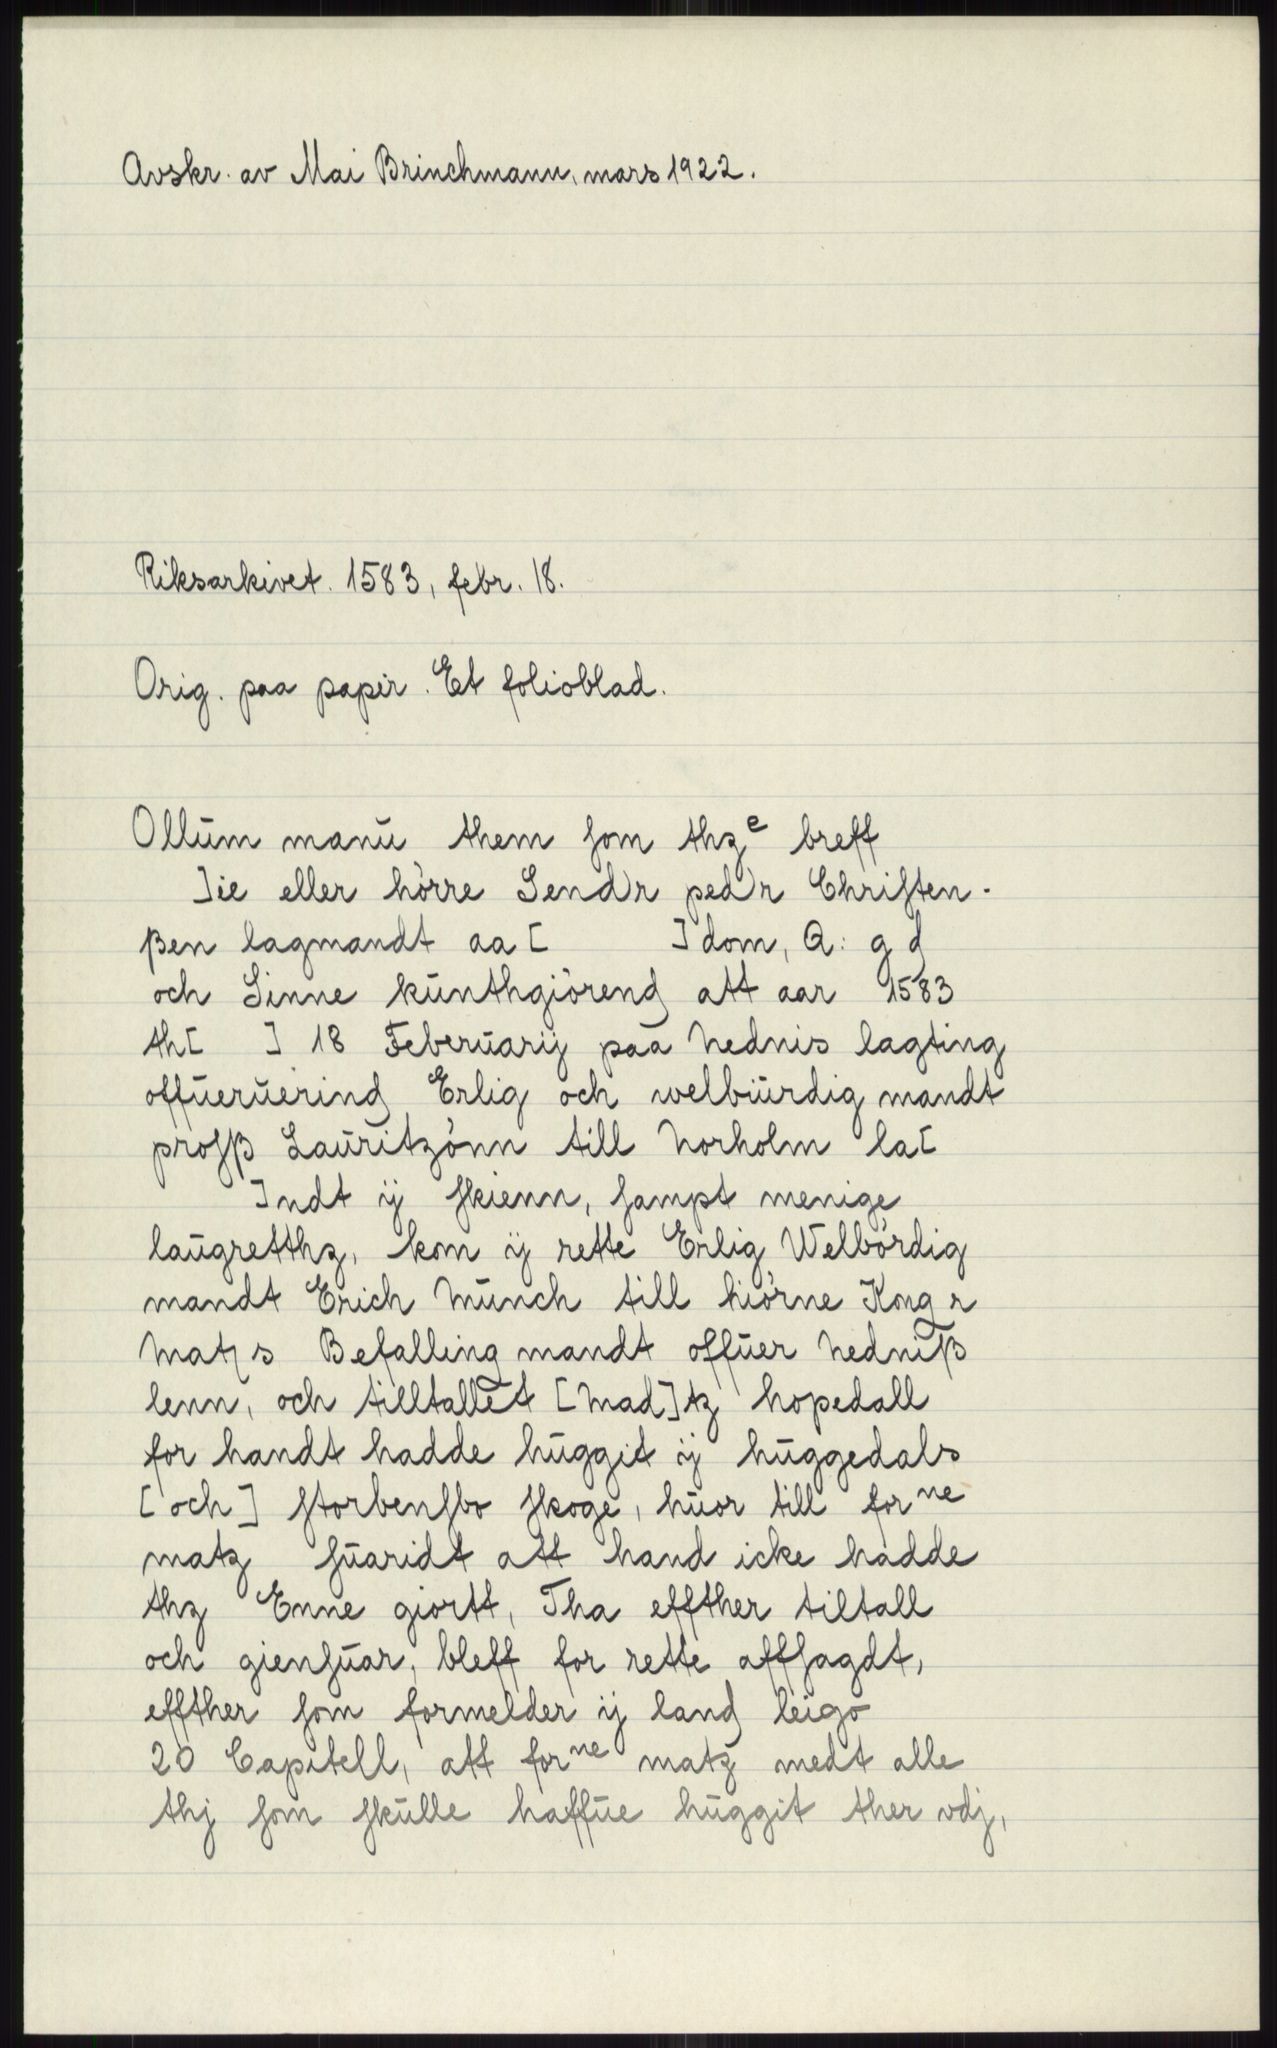 Avskr. av Mai Brinchmann, mars 1922.
Riksarkivet. 1583, febr. 18.
Orig. paa papir. Et folioblad.
Ollūm manū them som thz^e breff
]ie eller hörre Sendr pedr Christen-
ßen lagmandt aa [ ] dom, Q: g d
och Sinne kūnthgiörend att aar 1583
th[ ] 18 Feberūarij paa Nednis lagting
offūerūering Erlig och welbiürdig mandt
proſß Laūritzönn till Norholm la[
]ndt ij skienn, sampt menige
laūgretthz, kom ij rette Erlig Welbördig
mandt Erich Mūnch till hiörne Kong r
Matz s Befalling mandt offūer Nedniß
lenn, och tilltallet [Mad]tz hopedall
for handt hadde hūggit ij hūggedals
[och] storbensbo skoge, hūor till for^ne
matz sūaridt att hand icke hadde
thz Enne giortt, Tha effther tiltall
och giensūar, bleff for rette affsagdt,
effther som formelder ij land leigo
20 Capitell, att for^ne matz medt alle
thj som skūlle haffūe hūggit ther vdj,